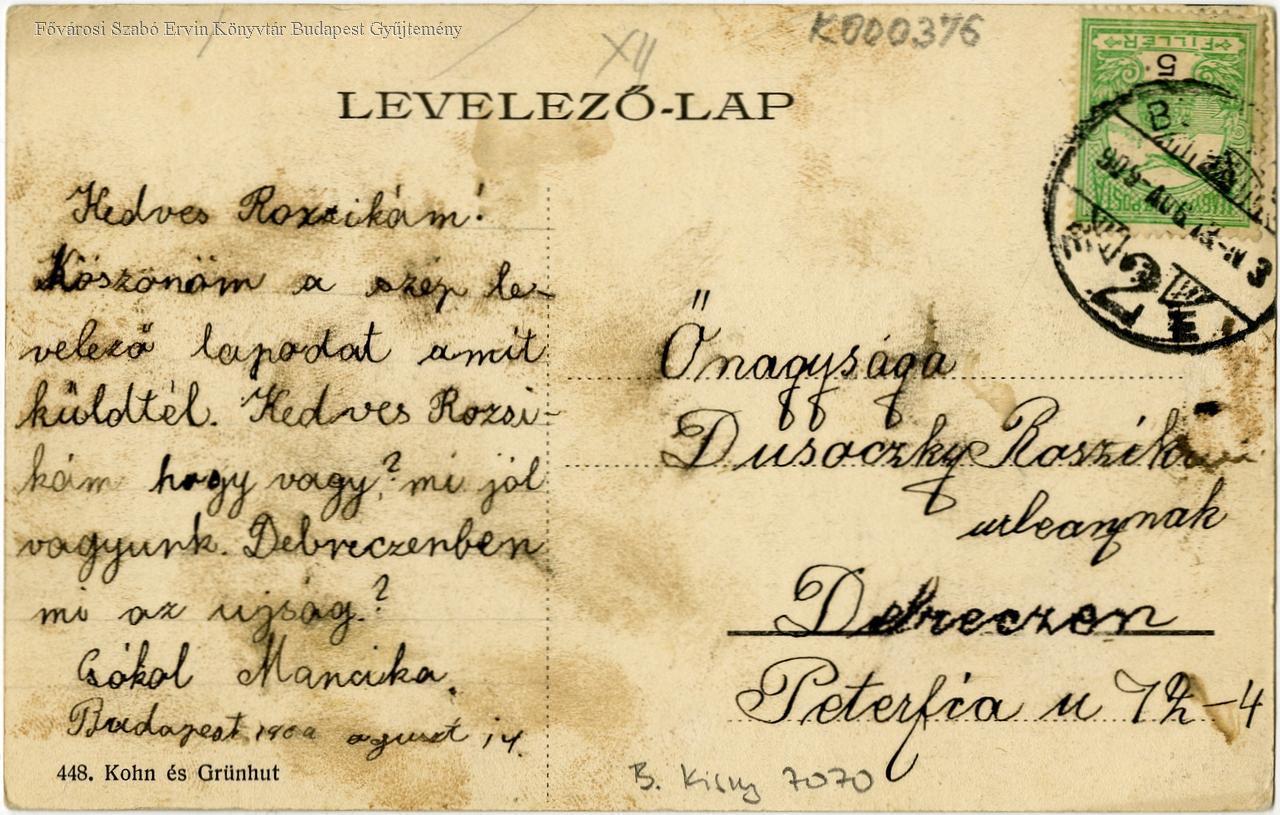 Fővárosi Szabó Ervin Könyvtár Budapest Gyűjtemény
K000376
XII
LEVELEZŐ-LAP
FILLER
5
909-AUG.13
3
Kedves Rozsikám!
Köszönöm a szép le-
velező lapodat amit
küldtél. Kedves Rozsi-
kám hogy vagy? mi jól
vagyunk. Debreczenben
mi az ujság?
Csókol Mancika.
Budapest 1909 aguszt 14.
448. Kohn és Grünhut
Őnagysága
Dusoczky Roszika
urleanynak
Debreczen
Peterfia u 72-4
B. Kisny 7070